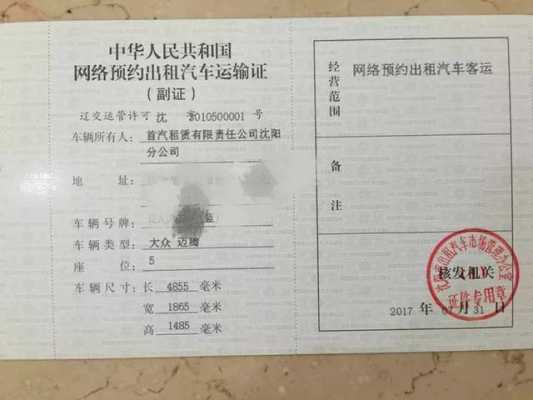 中华人民共和国
网络预约出租汽车运输证
(副证)
辽交运管许可 沈 字010500001 号
车辆所有人: 首汽租赁有限责任公司沈阳
分公司
地 址:
车辆号牌:
车辆类型: 大众 迈腾
座 位: 5
车辆尺寸: 长 4855 毫米
宽 1865 毫米
高 1485 毫米
经营范围
网络预约出租汽车客运
备注
核发机关
证件专用章
2017 年 月 31 日